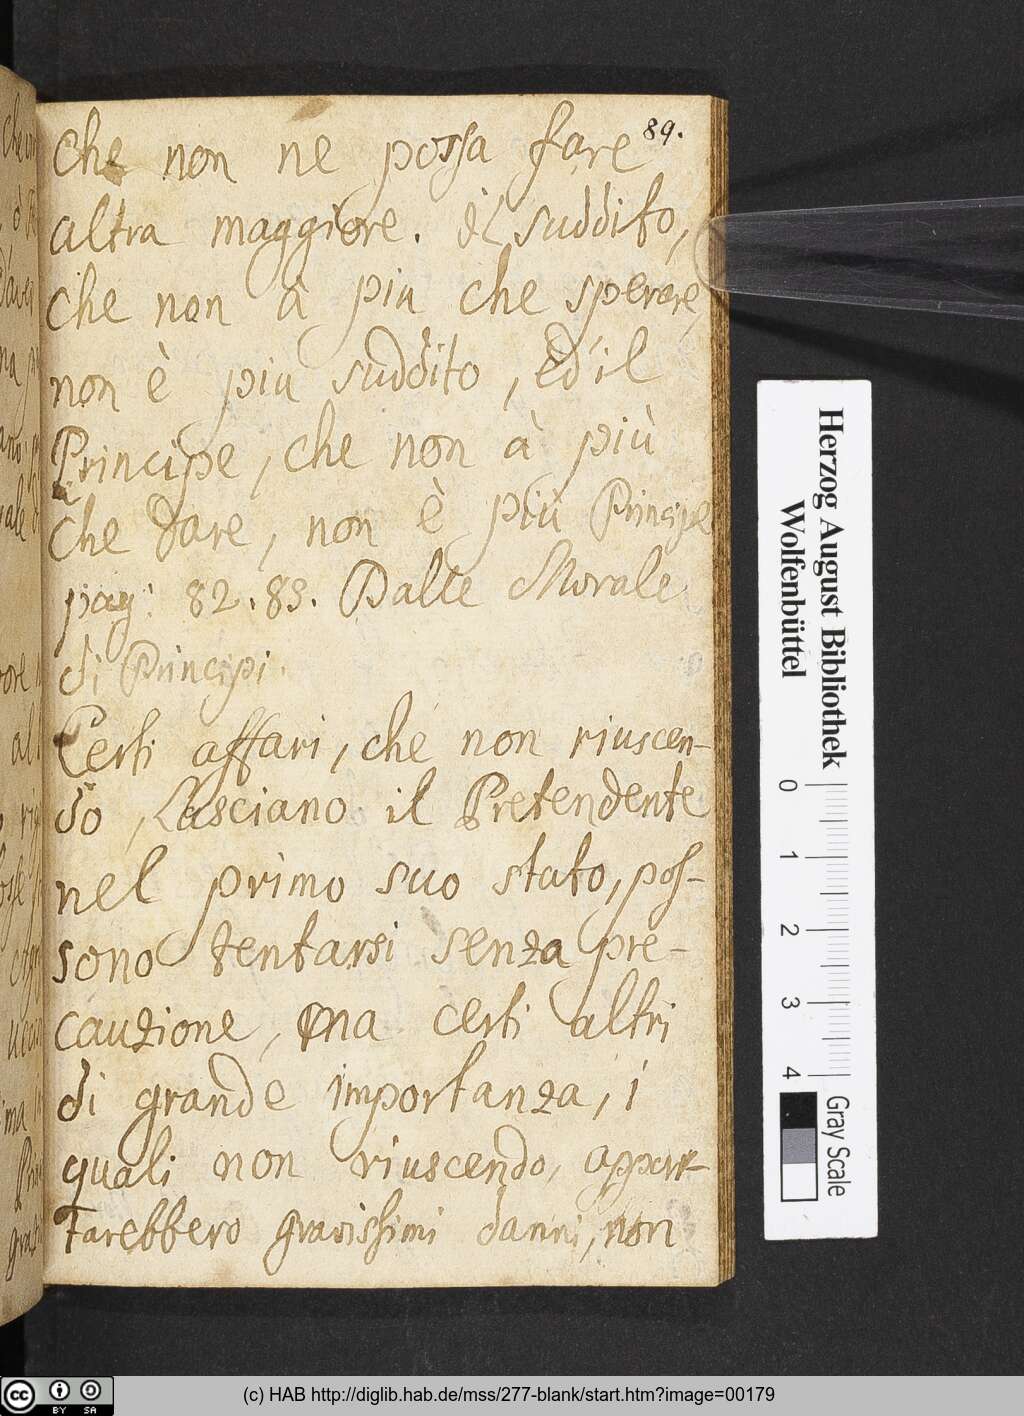 89.
che non ne possa fare
altra maggiore. il suddito,
che non à piu che sperare,
non è piu suddito, ed'il
Principe, che non à più
che dare, non è più Principe
pag: 82.83. Dalle Morale
di Principi.
Certi affari, che non riuscen-
do, lasciano il Pretendente
nel primo suo stato, pos-
sono tentarsi senza pre-
cauzione, ma certi altri
di grande importanza, i
quali non riuscendo, appor-
tarebbero gravissimi danni, non
Herzog August Bibliothek
Wolfenbüttel
0 1 2 3 4
Gray Scale
cc BY SA
(c) HAB http://diglib.hab.de/mss/277-blank/start.htm?image=00179